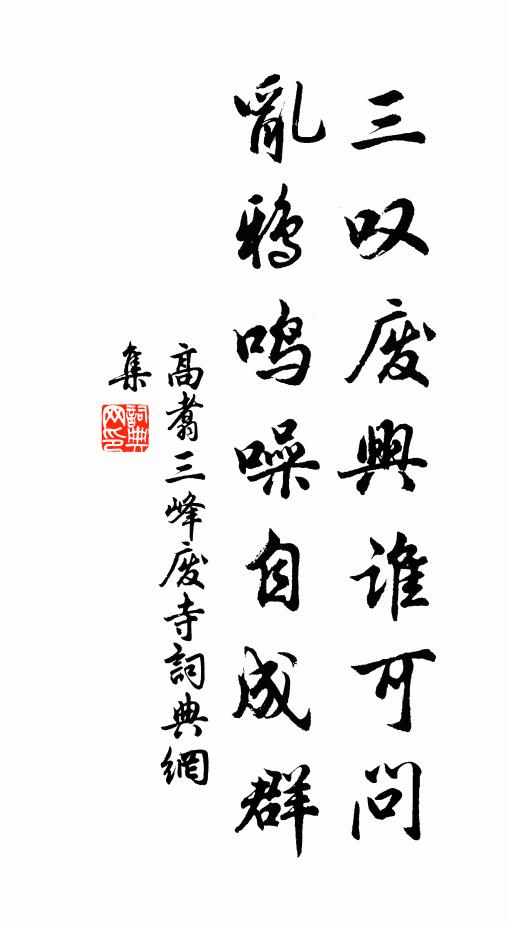 三叹废興谁可问
亂鸦鸣噪自成群
高翥三峰废寺詞典網
集
詞典
网印